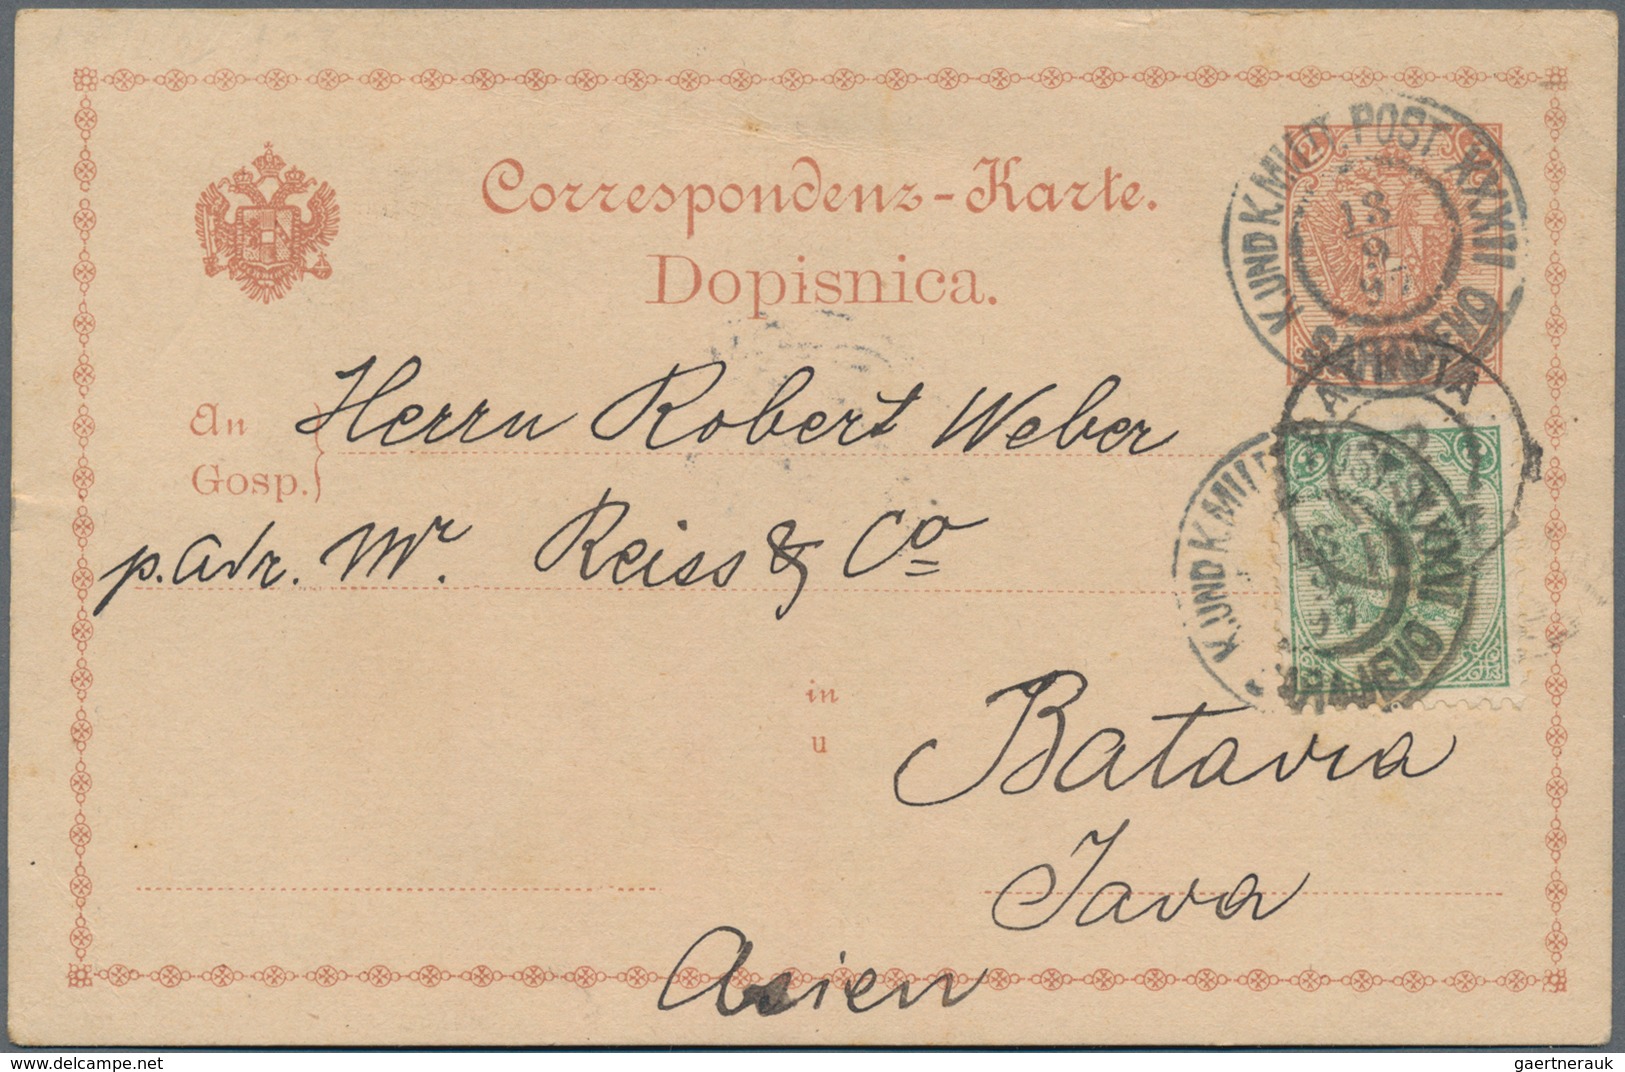 Correspondenz-Karte.
Dopisnica.
K. UND K. MILIT. POST XXXVII
18
9
97
SARAJEVO
An Herrn Robert Weber
Gosp.
p. Adr. Mr. Reiss & Co
BATAVIA
K. UND K. MILIT. POST XXXVII
18
9
97
SARAJEVO
in Batavia
u
Java
Asien
www.delcampe.net
gaertnerauk